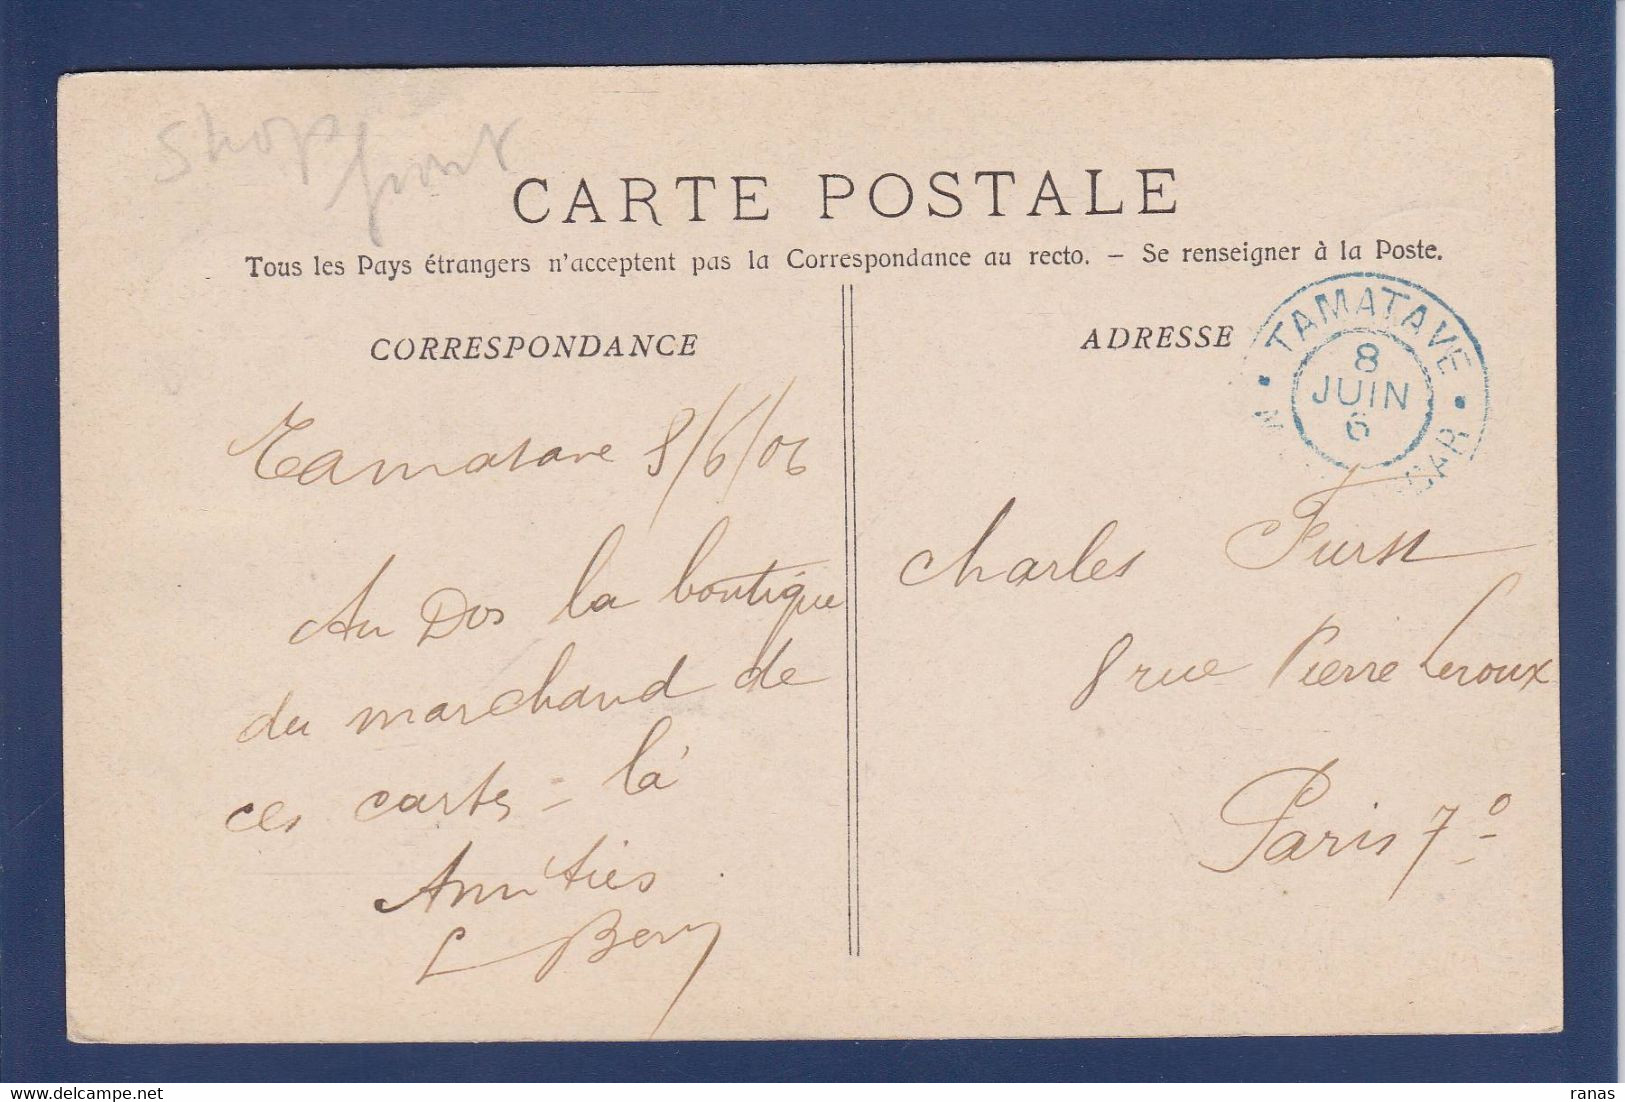 Shop
front
CARTE POSTALE
Tous les Pays étrangers n'acceptent pas la Correspondance au recto. — Se renseigner à la Poste.
CORRESPONDANCE
ADRESSE
TAMATAVE
8
JUIN
6
Tamatave 8/6/06
Au Dos la boutique
du marchand de
ces cartes-là
Amitiés
L Bery
Charles Furst
8 rue Pierre Leroux
Paris 7º
www.delcampe.net
ranas